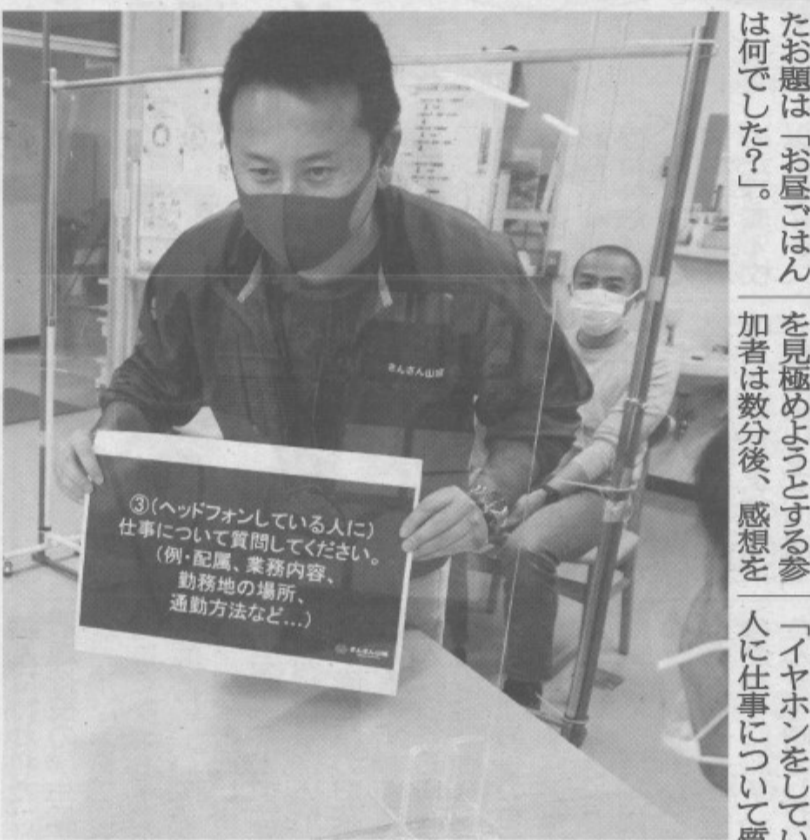 たお題は「お昼ごはん
は何でした?」。
を見極めようとする参
加者は数分後、感想を
「イヤホンをしてい
人に仕事について質
さんさん山城
③(ヘッドフォンしている人に)
仕事について質問してください。
(例・配属、業務内容、
勤務地の場所、
通勤方法など…)
さんさん山城